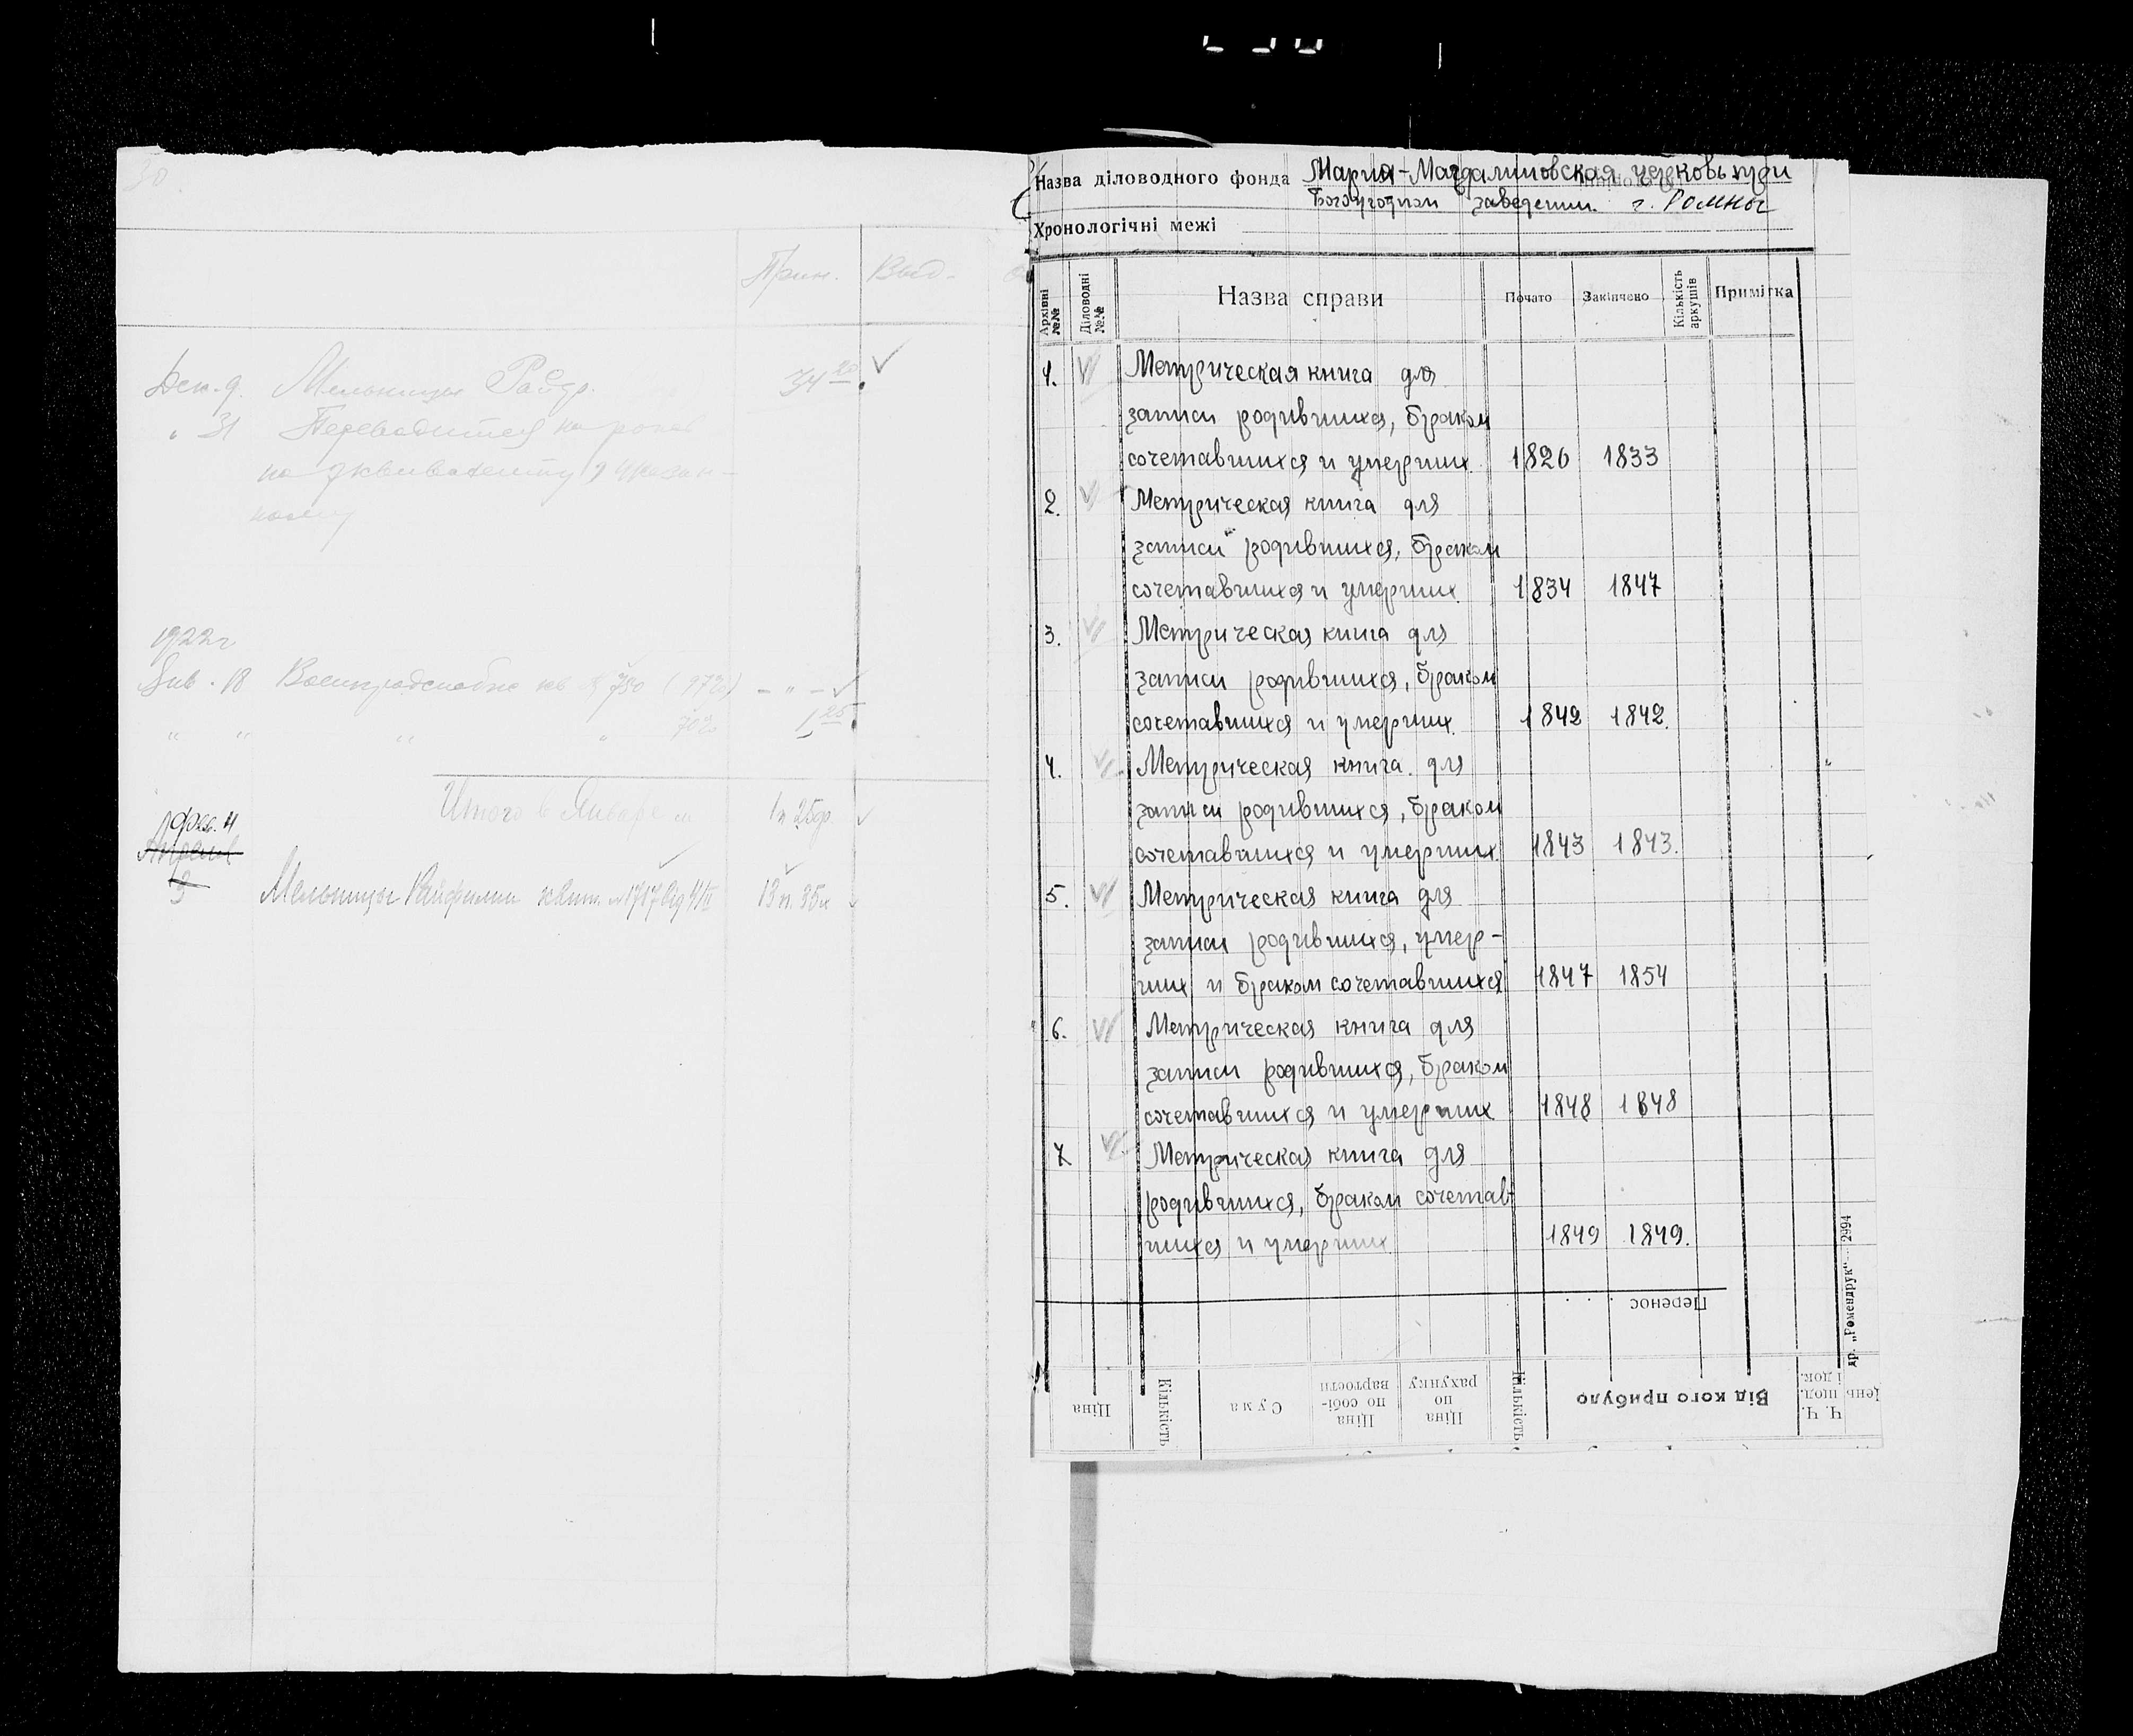 30
Прин. Выд.
Дек. 9. Мельницы 34 20
" 31 Переводится на
по эквиваленту
1922 г
Янв. 18 кв № 750 — " —
" " " " 1 25
Итого в Январе м 1 п 25 ф
Фев. 4
Апрель
3 Мельницы квит. № 1717 від 13 п. 35 ф
Назва діловодного фонда Мария-Магдалиновская церковь при
Богоугодном заведении г. Ромны
Хронологічні межі
Архівні №№ Діловодні №№ Назва справи Почато Закінчено Кількість аркушів Примітка
1. Метрическая книга для
записи родившихся, браком
сочетавшихся и умерших 1826 1833
2. Метрическая книга для
записи родившихся, браком
сочетавшихся и умерших 1834 1847
3. Метрическая книга для
записи родившихся, браком
сочетавшихся и умерших. 1842 1842.
4. Метрическая книга для
записи родившихся, браком
сочетавшихся и умерших. 1843 1843.
5. Метрическая книга для
записи родившихся, умер-
ших и браком сочетавшихся 1847 1854
6. Метрическая книга для
записи родившихся, браком
сочетавшихся и умерших 1848 1848
7 Метрическая книга для
родившихся, браком сочетав
шихся и умерших 1849 1849.
Перенос
др. „Ромендрук" — 2994
Ціна Кількість Сума Ціна по собі-вартости Ціна по рахунку Кількість Від кого прибуло Ч. Ч. щод. і док. День